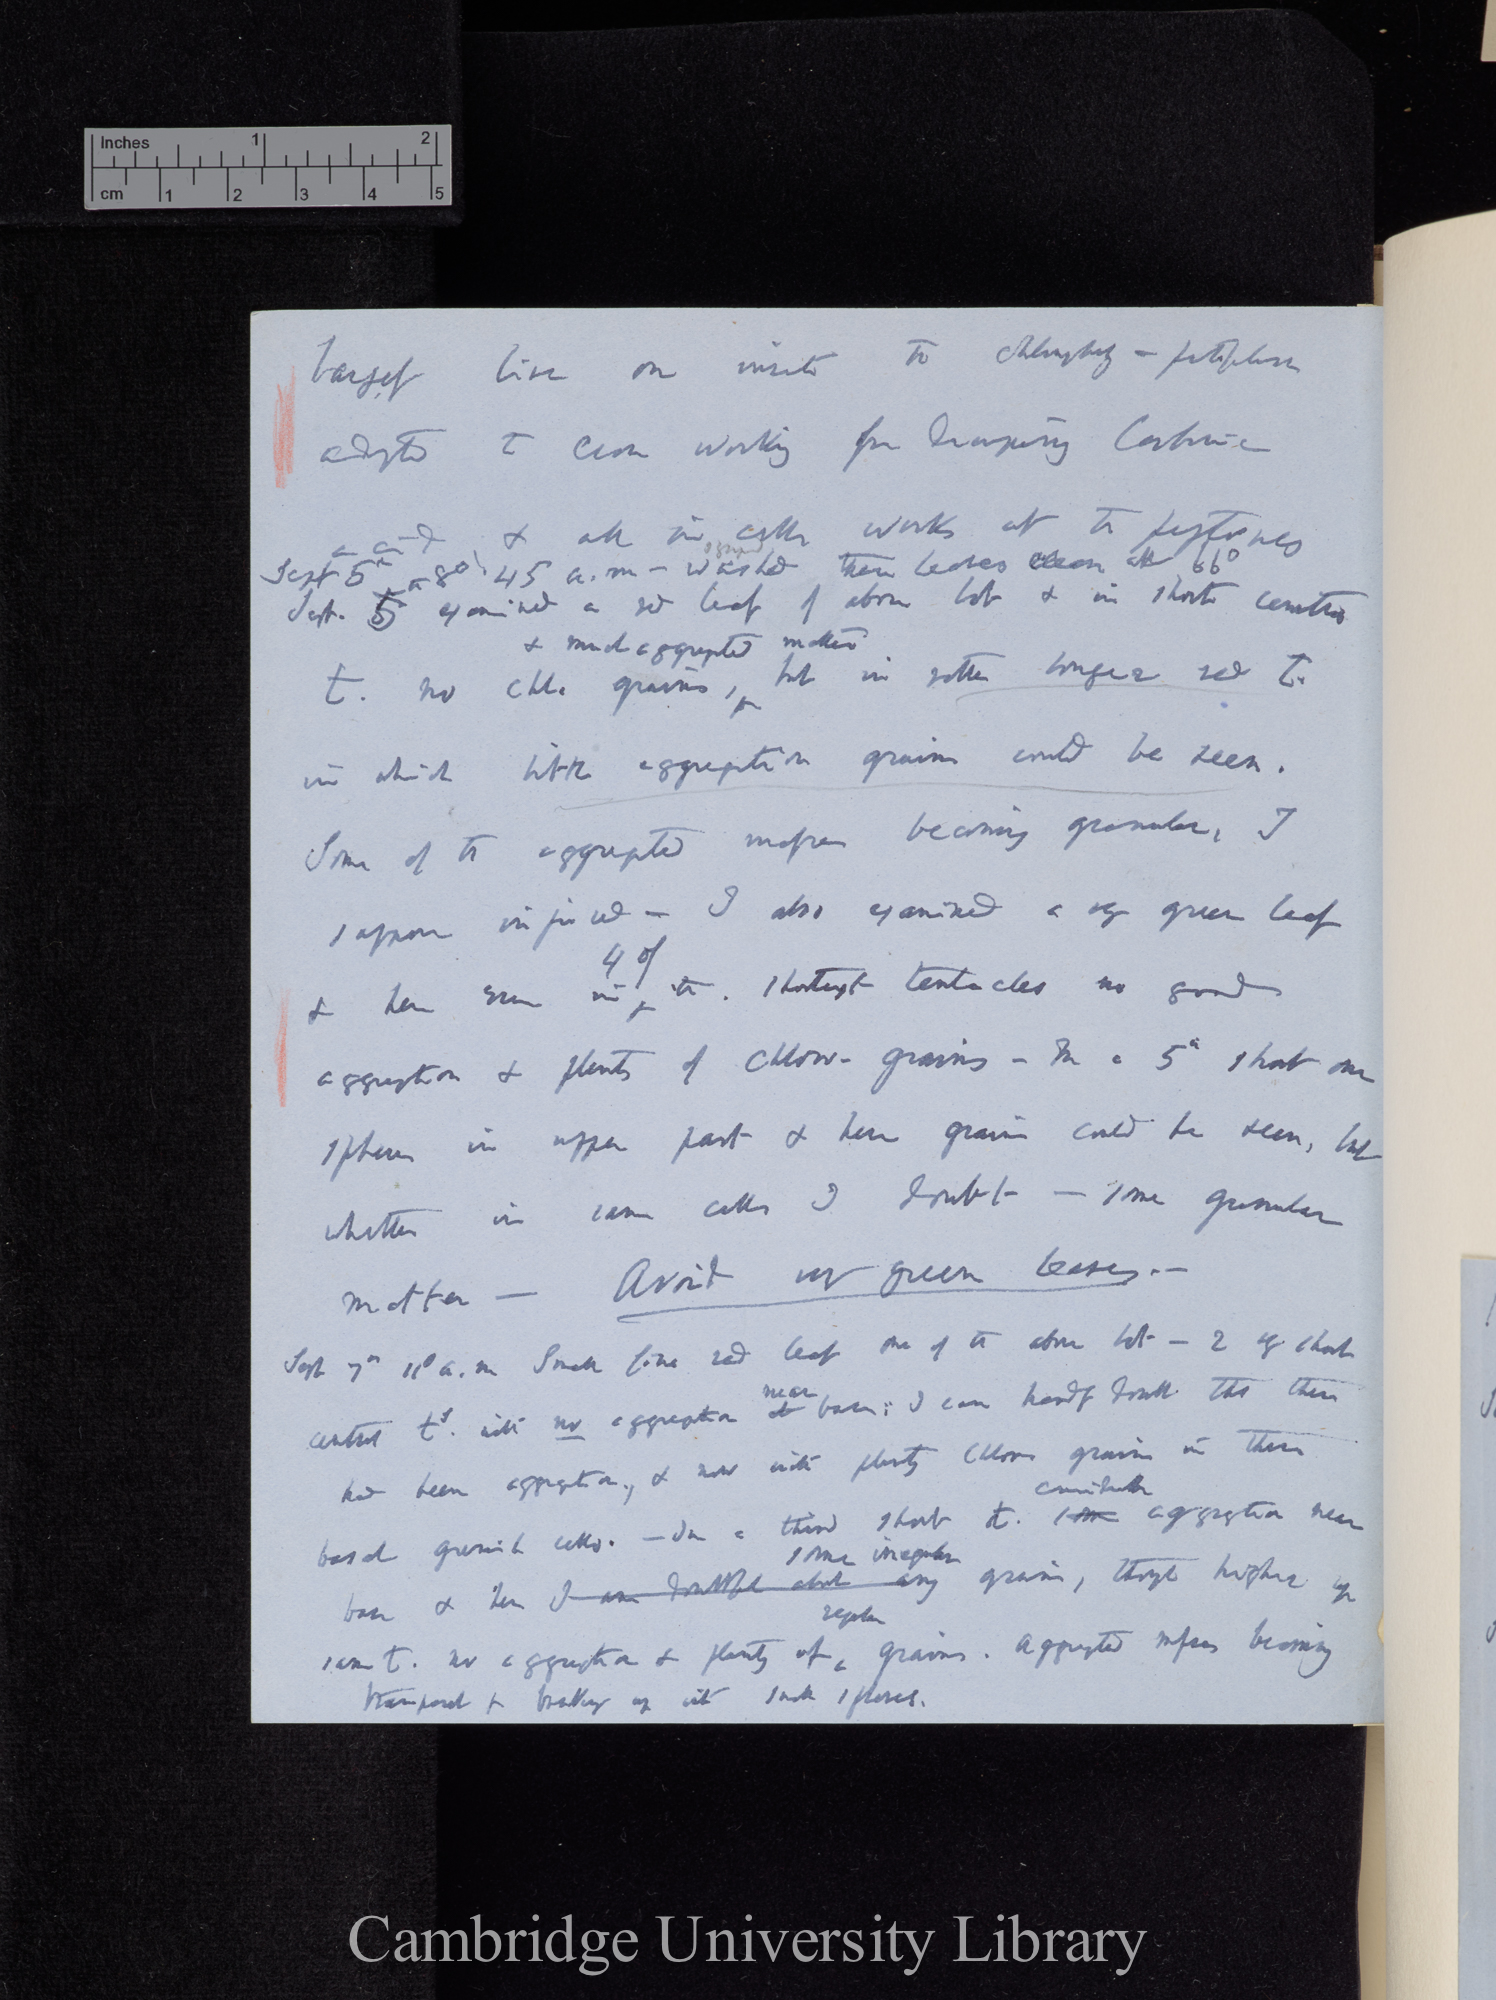 Inches 1 2
cm 1 2 3 4 5
largely live on insects to chlorophyll —
adapted to cease working for decomposing Carbonic
acid & all in cells works at the
Sept 5th 8° 45' a.m — washed these leaves clean at 66°
Sept. 5th examined a red leaf of above lot & in short central
& much aggregated matter
t. no chl. grains, but in rather longer red t.
in which little aggregation grains could be seen.
Some of the aggregated masses becoming granular, I
suppose injured — I also examined a very green leaf
4 of
& here even in the shortest tentacles no good
aggregation & plenty of Chloro- grains — In a 5th short one
spheres in upper part & here grains could be seen, but
whether in same cells I doubt — some granular
matter — Avoid very green leaves.—
Sept 7th 11° a.m Small fine red leaf one of the above lot — 2 of short
near
central ts. with no aggregation at base; I can hardly doubt that there
had been aggregation, & now with plenty Chloro grains in these
basal greenish cells. — In a third short t. some aggregation near
some irregular
base & here I am doubtful about any grains, though higher up
regular
same t. no aggregation & plenty of grains. Aggregated masses becoming
transparent & breaking up into small spheres.
Cambridge University Library